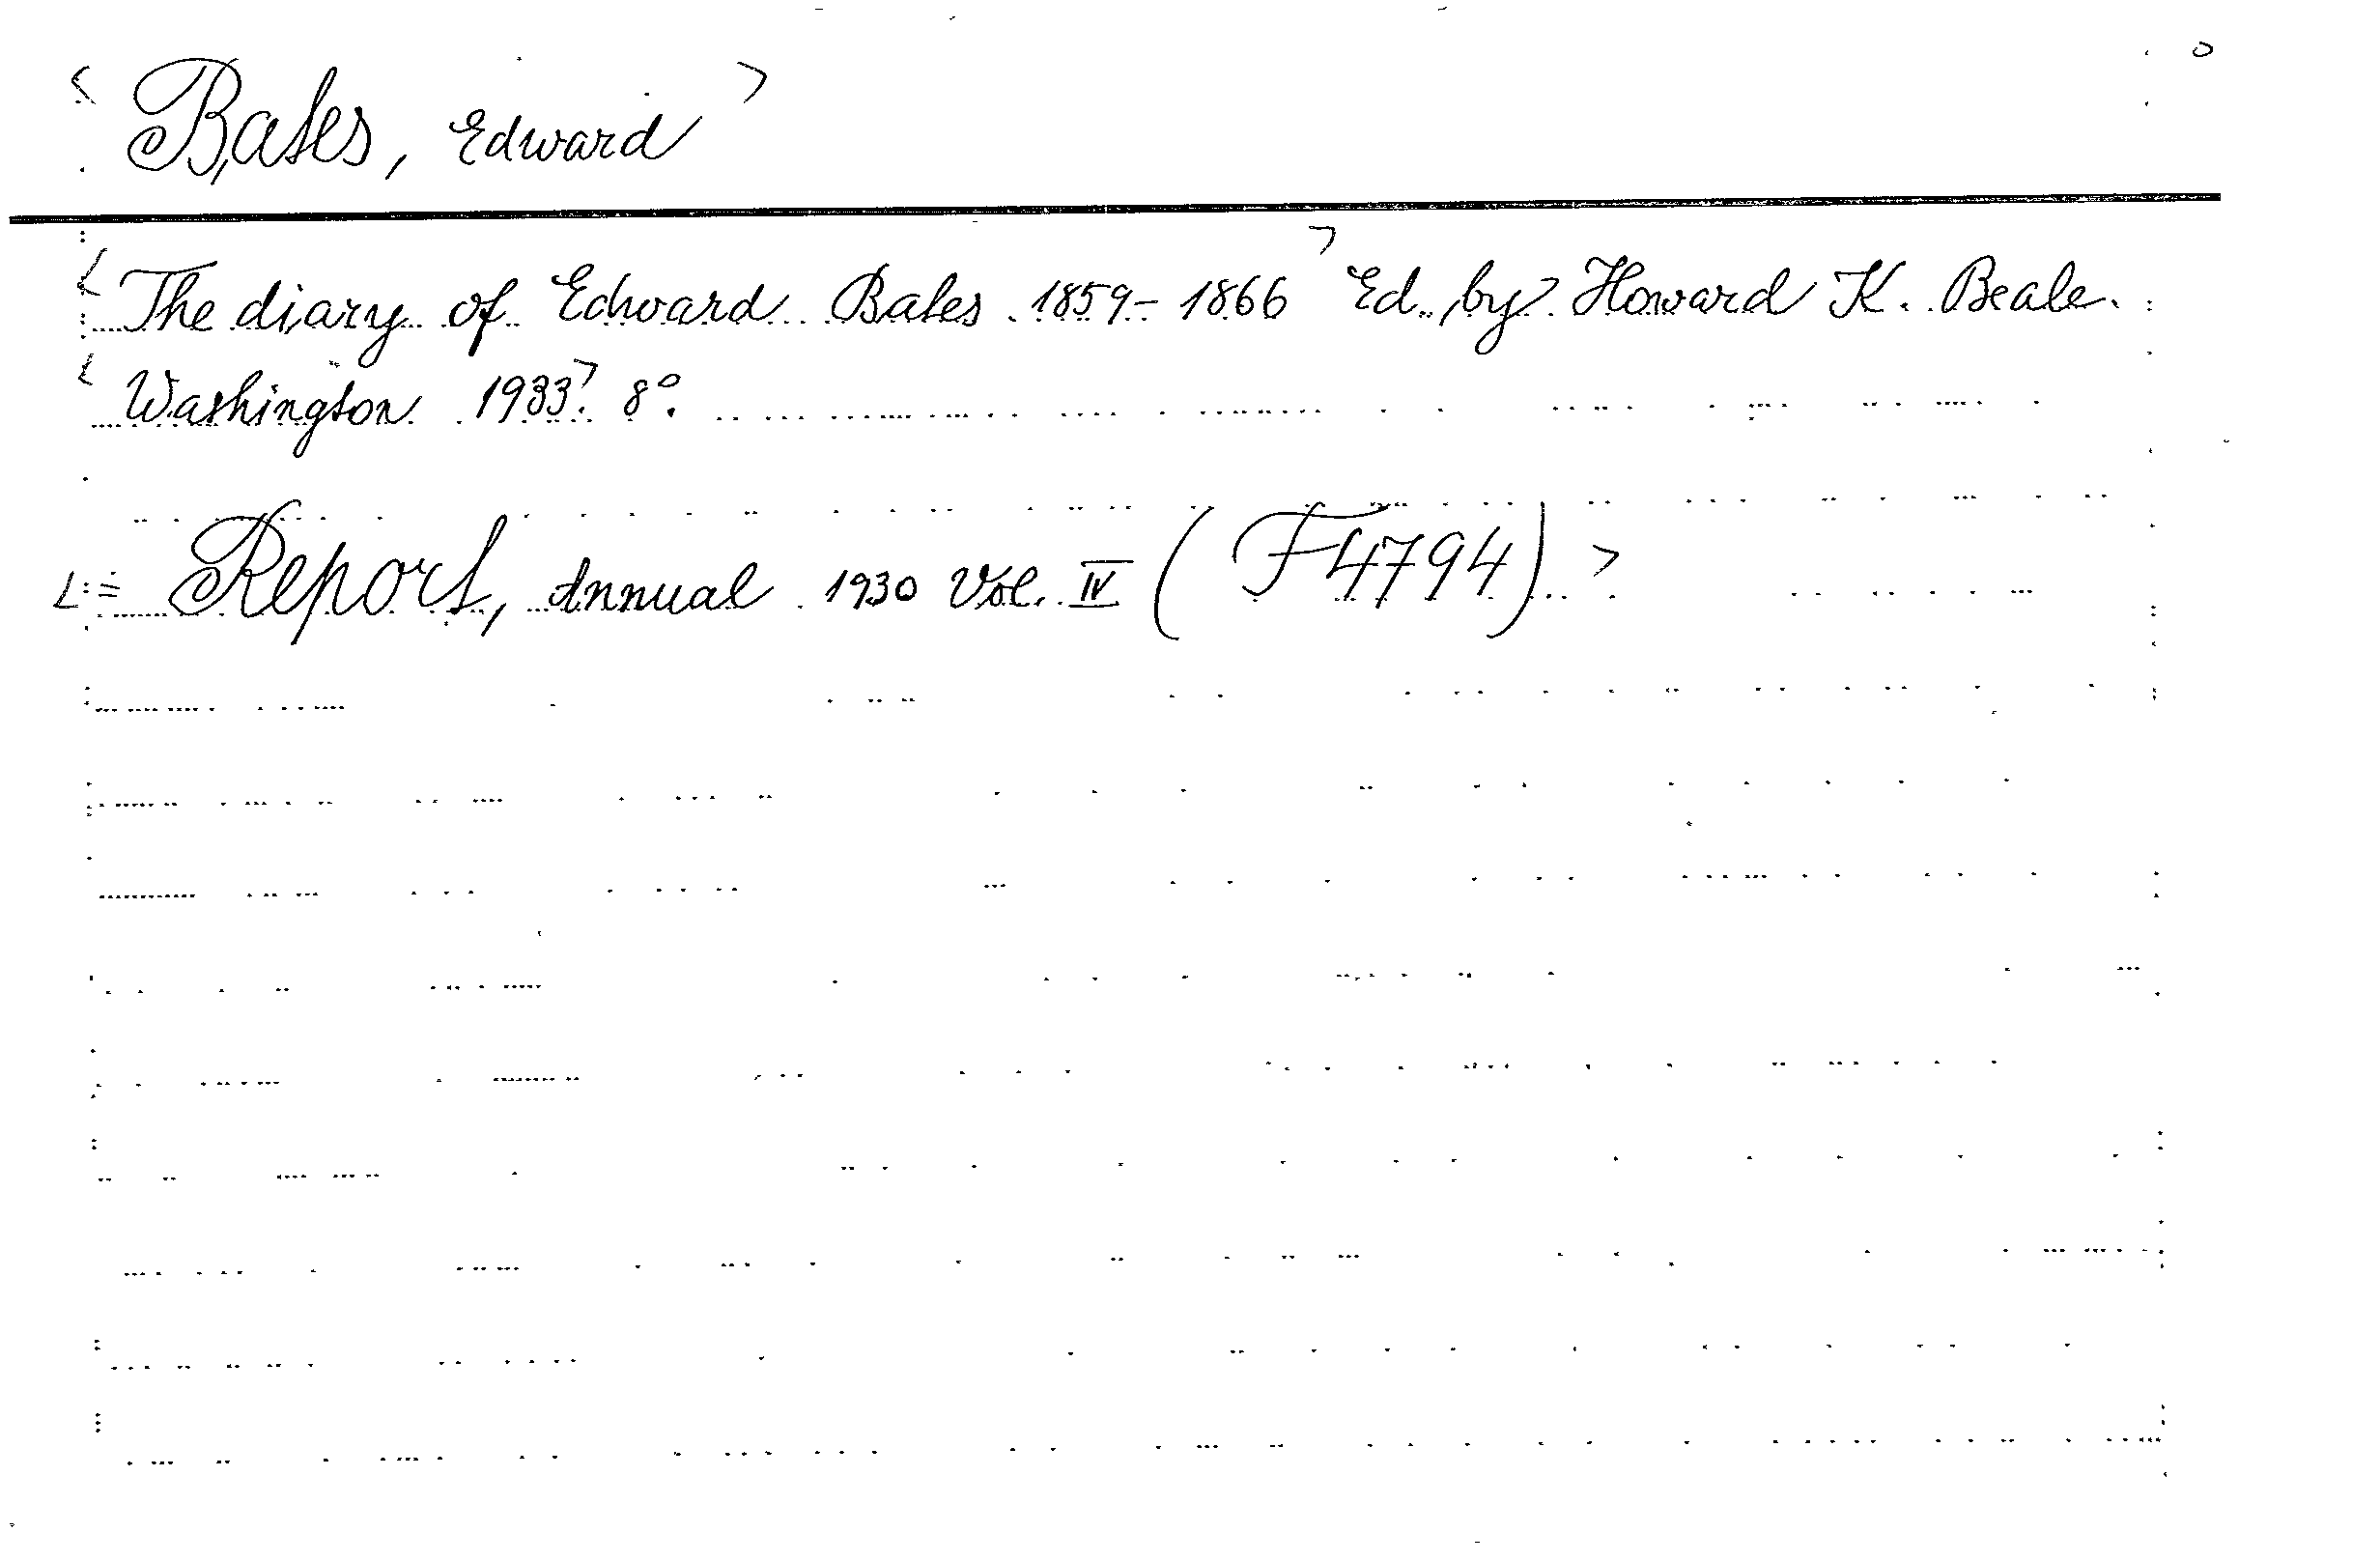 < Bates, Edward >
< The diary of Edward Bates 1859-1866 > Ed. by Howard K. Beale.
< Washington 1933 >. 8°.
< = Report, Annual 1930 Vol. IV (F4794) >